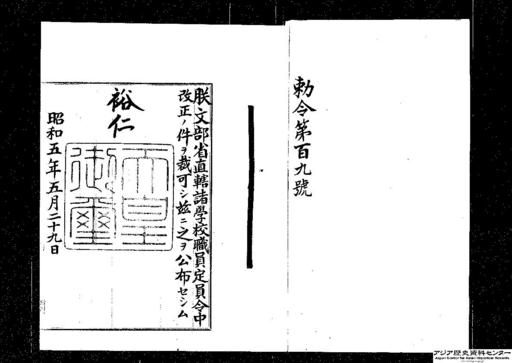 勅令第百九號
朕文部省直轄諸學校職員定員令中
改正ノ件ヲ裁可シ茲ニ之ヲ公布セシム
裕仁
天皇御璽
昭和五年五月二十九日
アジア歴史資料センター
Japan Center for Asian Historical Records